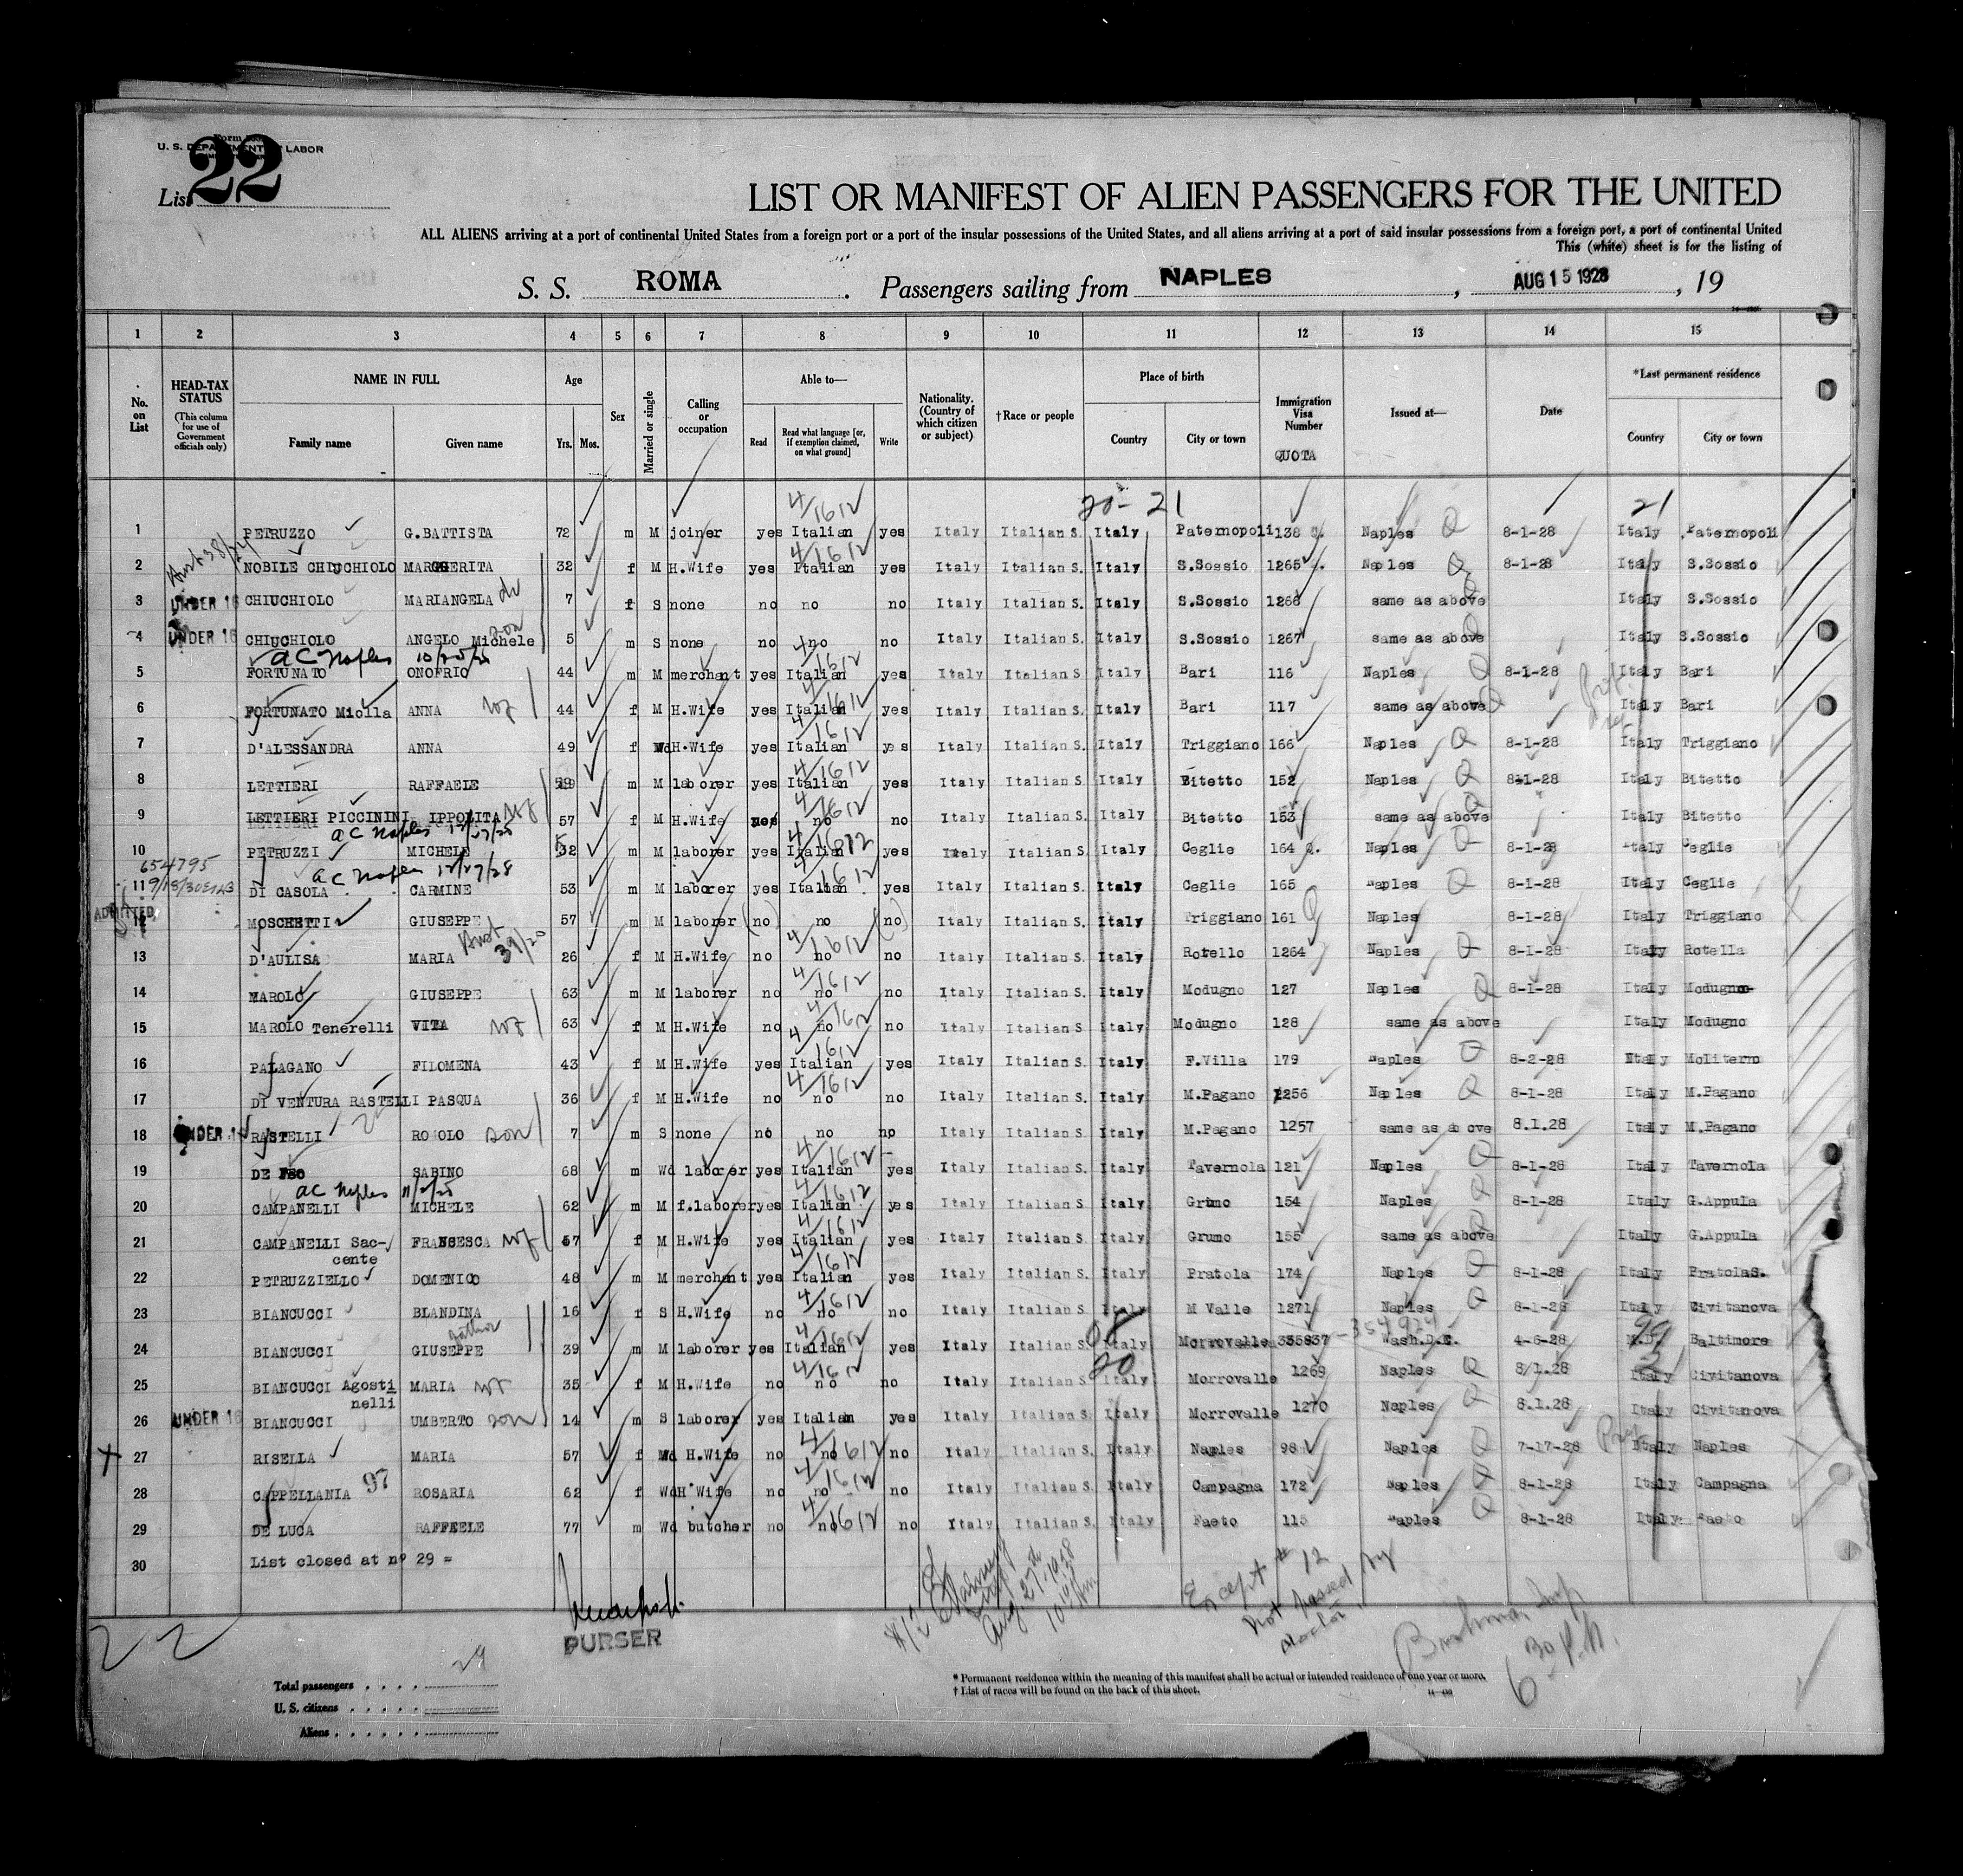 U. S. DEPARTMENT OF LABOR
List 22
LIST OR MANIFEST OF ALIEN PASSENGERS FOR THE UNITED
ALL ALIENS arriving at a port of continental United States from a foreign port or a port of the insular possessions of the United States, and all aliens arriving at a port of said insular possessions from a foreign port, a port of continental United
This (white) sheet is for the listing of
S. S. ROMA. Passengers sailing from NAPLES, AUG 15 1928, 19
1 2 3 4 5 6 7 8 9 10 11 12 13 14 15
No. on List
HEAD-TAX STATUS (This column for use of Government officials only)
NAME IN FULL Family name Given name
Age Yrs. Mos.
Sex
Married or single
Calling or occupation
Able to— Read Read what language [or, if exemption claimed, on what ground] Write
Nationality. (Country of which citizen or subject)
†Race or people
Place of birth Country City or town
Immigration Visa Number QUOTA
Issued at—
Date
*Last permanent residence Country City or town
20-21 21
1 PETRUZZO G.BATTISTA 72 m M joiner yes Italian yes Italy Italian S. Italy Paternopoli 138 Naples Q 8-1-28 Italy Paternopoli
2 NOBILE CHIUCHIOLO MARGHERITA 32 f M H.Wife yes Italian yes Italy Italian S. Italy S.Sossio 1265 Naples Q 8-1-28 Italy S.Sossio
3 UNDER 16 CHIUCHIOLO MARIANGELA 7 f S none no no no Italy Italian S. Italy S.Sossio 1266 same as above Italy S.Sossio
4 UNDER 16 CHIUCHIOLO ANGELO Michele son 5 m S none no no no Italy Italian S. Italy S.Sossio 1267 same as above Italy S.Sossio
AC Naples
5 FORTUNATO ONOFRIO 44 m M merchant yes Italian yes Italy Italian S Italy Bari 116 Naples Q 8-1-28 Italy Bari
6 FORTUNATO Miolla ANNA wf 44 f M H.Wife yes Italian yes Italy Italian S. Italy Bari 117 same as above Italy Bari
7 D'ALESSANDRA ANNA 49 f Wd H.Wife yes Italian yes Italy Italian S. Italy Triggiano 166 Naples Q 8-1-28 Italy Triggiano
8 LETTIERI RAFFAELE 59 m M laborer yes Italian yes Italy Italian S. Italy Bitetto 152 Naples Q 8-1-28 Italy Bitetto
9 LETTIERI PICCININI IPPOLITA wf 57 f M H.Wife no no Italy Italian S. Italy Bitetto 153 same as above Italy Bitetto
AC Naples
10 PETRUZZI MICHELE 52 m M laborer yes Italian yes Italy Italian S. Italy Ceglie 164 Naples Q 8-1-28 Italy Ceglie
654795 AC Naples 12/27/28
11 DI CASOLA CARMINE 53 m M laborer yes Italian yes Italy Italian S. Italy Ceglie 165 Naples Q 8-1-28 Italy Ceglie
ADMITTED
12 MOSCHETTI GIUSEPPE 57 m M laborer (no) no (no) Italy Italian S. Italy Triggiano 161 Naples 8-1-28 Italy Triggiano
13 D'AULISA MARIA 26 f M H.Wife no no no Italy Italian S. Italy Rotello 1264 Naples Q 8-1-28 Italy Rotella
14 MAROLO GIUSEPPE 63 m M laborer no no no Italy Italian S. Italy Modugno 127 Naples Q 8-1-28 Italy Modugno
15 MAROLO Tenerelli VITA wf 63 f M H.Wife no no no Italy Italian S. Italy Modugno 128 same as above Italy Modugno
16 PALAGANO FILOMENA 43 f M H.Wife yes Italian yes Italy Italian S. Italy F.Villa 179 Naples Q 8-2-28 Italy Moliterno
17 DI VENTURA RASTELLI PASQUA 36 f M H.Wife no no no Italy Italian S. Italy M.Pagano 1256 Naples Q 8-1-28 Italy M.Pagano
18 UNDER 16 RASTELLI ROMOLO son 7 m S none no no no Italy Italian S. Italy M.Pagano 1257 same as above 8.1.28 Italy M.Pagano
19 DE FEO SABINO 68 m Wd laborer yes Italian yes Italy Italian S. Italy Tavernola 121 Naples Q 8-1-28 Italy Tavernola
AC Naples
20 CAMPANELLI MICHELE 62 m M f.laborer yes Italian yes Italy Italian S. Italy Grumo 154 Naples Q 8-1-28 Italy G.Appula
21 CAMPANELLI Sac-cente FRANCESCA wf 57 f M H.Wife yes Italian yes Italy Italian S. Italy Grumo 155 same as above Italy G.Appula
22 PETRUZZIELLO DOMENICO 48 m M merchant yes Italian yes Italy Italian S. Italy Pratola 174 Naples Q 8-1-28 Italy PratolaS.
23 BIANCUCCI BLANDINA 16 f S H.Wife no no no Italy Italian S Italy M Valle 1271 Naples Q 8-1-28 Italy Civitanova
24 BIANCUCCI GIUSEPPE father 39 m M laborer yes Italian yes Italy Italian S. Italy Morrovalle 335837 -354924 Wash.D.C. 4-6-28 M.D. Baltimore
25 BIANCUCCI Agostinelli MARIA wf 35 f M H.Wife no no no Italy Italian S. Italy Morrovalle 1269 Naples Q 8/1.28 Italy Civitanova
26 UNDER 16 BIANCUCCI UMBERTO son 14 m S laborer yes Italian yes Italy Italian S. Italy Morrovalle 1270 Naples Q 8.1.28 Italy Civitanova
27 RISELLA MARIA 57 f Wd H.Wife no no no Italy Italian S. Italy Naples 98 Naples Q 7-17-28 Italy Naples
28 CAPPELLANIA 97 ROSARIA 62 f Wd H.Wife no no no Italy Italian S. Italy Campagna 172 Naples Q 8-1-28 Italy Campagna
29 DE LUCA RAFFAELE 77 m Wd butcher no no no Italy Italian S. Italy Faeto 115 Naples Q 8-1-28 Italy Faeto
30 List closed at nº 29 =
PURSER
Aug. 27th 1928
Except # 12
not passed by
doctor
6 30 P.M.
22
Total passengers . . . . 29
U. S. citizens . . . . .
Aliens . . . . . .
* Permanent residence within the meaning of this manifest shall be actual or intended residence of one year or more.
† List of races will be found on the back of this sheet.